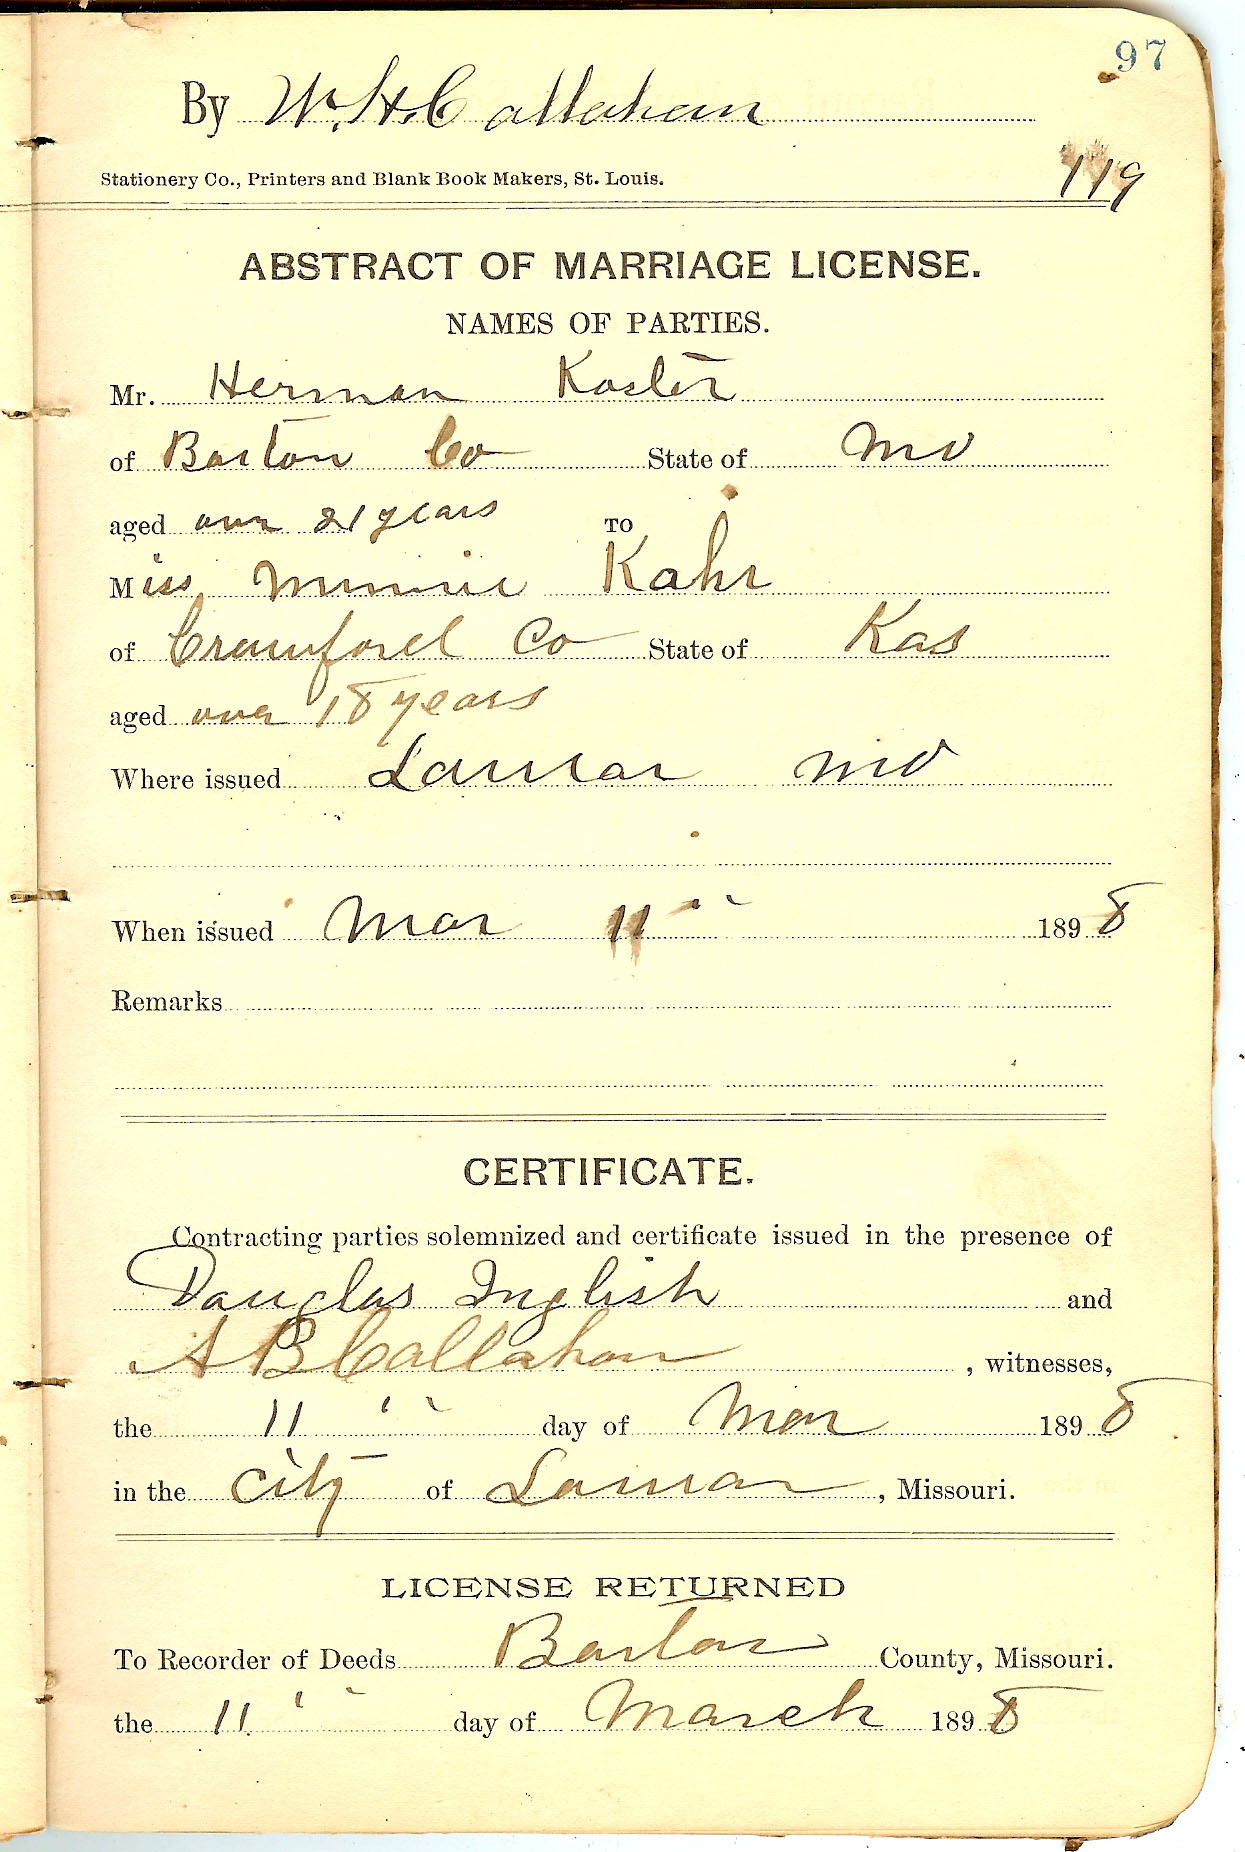 97
By W. H. Callahan
Stationery Co., Printers and Blank Book Makers, St. Louis.
119
ABSTRACT OF MARRIAGE LICENSE.
NAMES OF PARTIES.
Mr. Herman Koster
of Barton Co State of Mo
aged over 21 years TO
Miss Minnie Kahr
of Crawford Co State of Kas
aged over 18 years
Where issued Lamar Mo
When issued Mar 11" 1898
Remarks
CERTIFICATE.
Contracting parties solemnized and certificate issued in the presence of
Douglas Inglish and
A B Callahan, witnesses,
the 11" day of Mar 1898
in the City of Lamar, Missouri.
LICENSE RETURNED
To Recorder of Deeds Barton County, Missouri.
the 11" day of March 1898